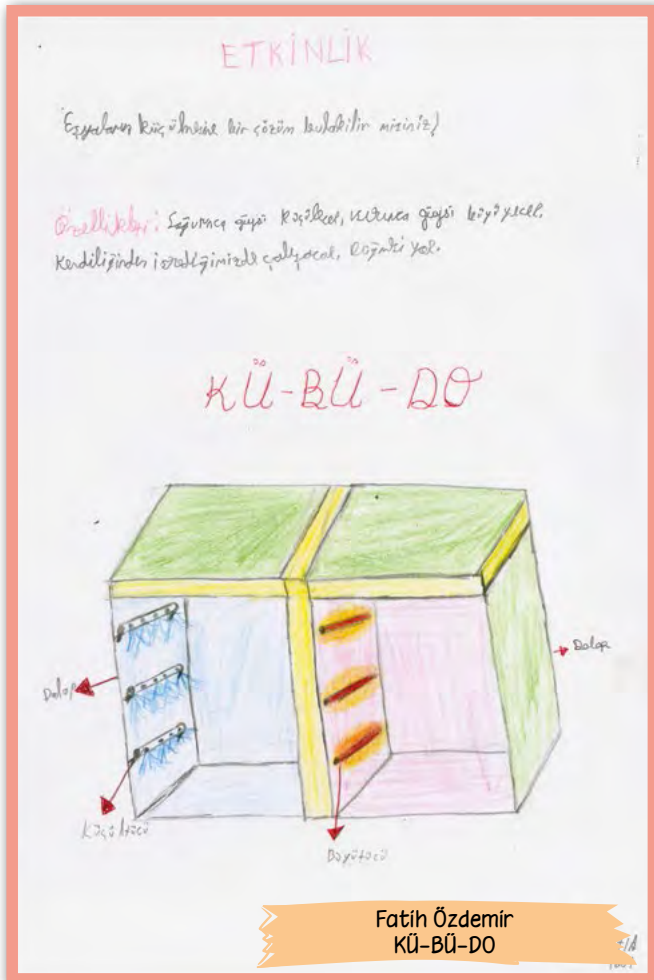 ETKİNLİK
Eşyaların küçülmesine bir çözüm bulabilir misiniz?
Özellikler: Soğutunca giysi küçülecek, ısıtınca giysi büyüyecek.
Kendiliğinden istediğimizde çalışacak,
KÜ-BÜ-DO
Dolap
Dolap
Küçültücü
Büyütücü
Fatih Özdemir
KÜ-BÜ-DO
/A